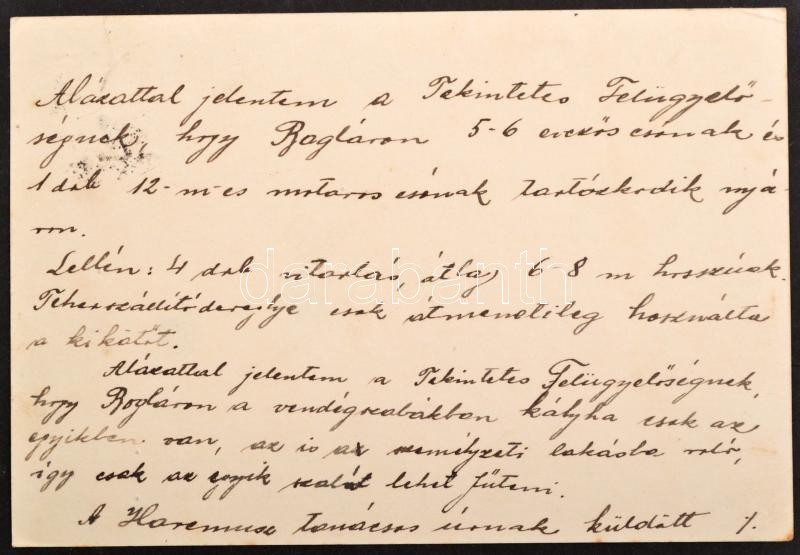 Alázattal jelentem a Tekintetes Felügyelő-
ségnek, hogy Bogláron 5-6 evezős csónak és
1 drb 12-m-es motoros csónak tartózkodik nyá-
ron.
Lellén: 4 drb vitorlás, átlag 6-8 m hosszúak.
Teherszállító dereglye csak átmenetileg használta
a kikötőt.
Alázattal jelentem a Tekintetes Felügyelőségnek,
hogy Bogláron a vendégszobákban kályha csak az
egyikben van, az is a személyzeti lakásba való,
így csak az egyik szobát lehet fűteni.
A tanácsos úrnak küldött %.
darabanth